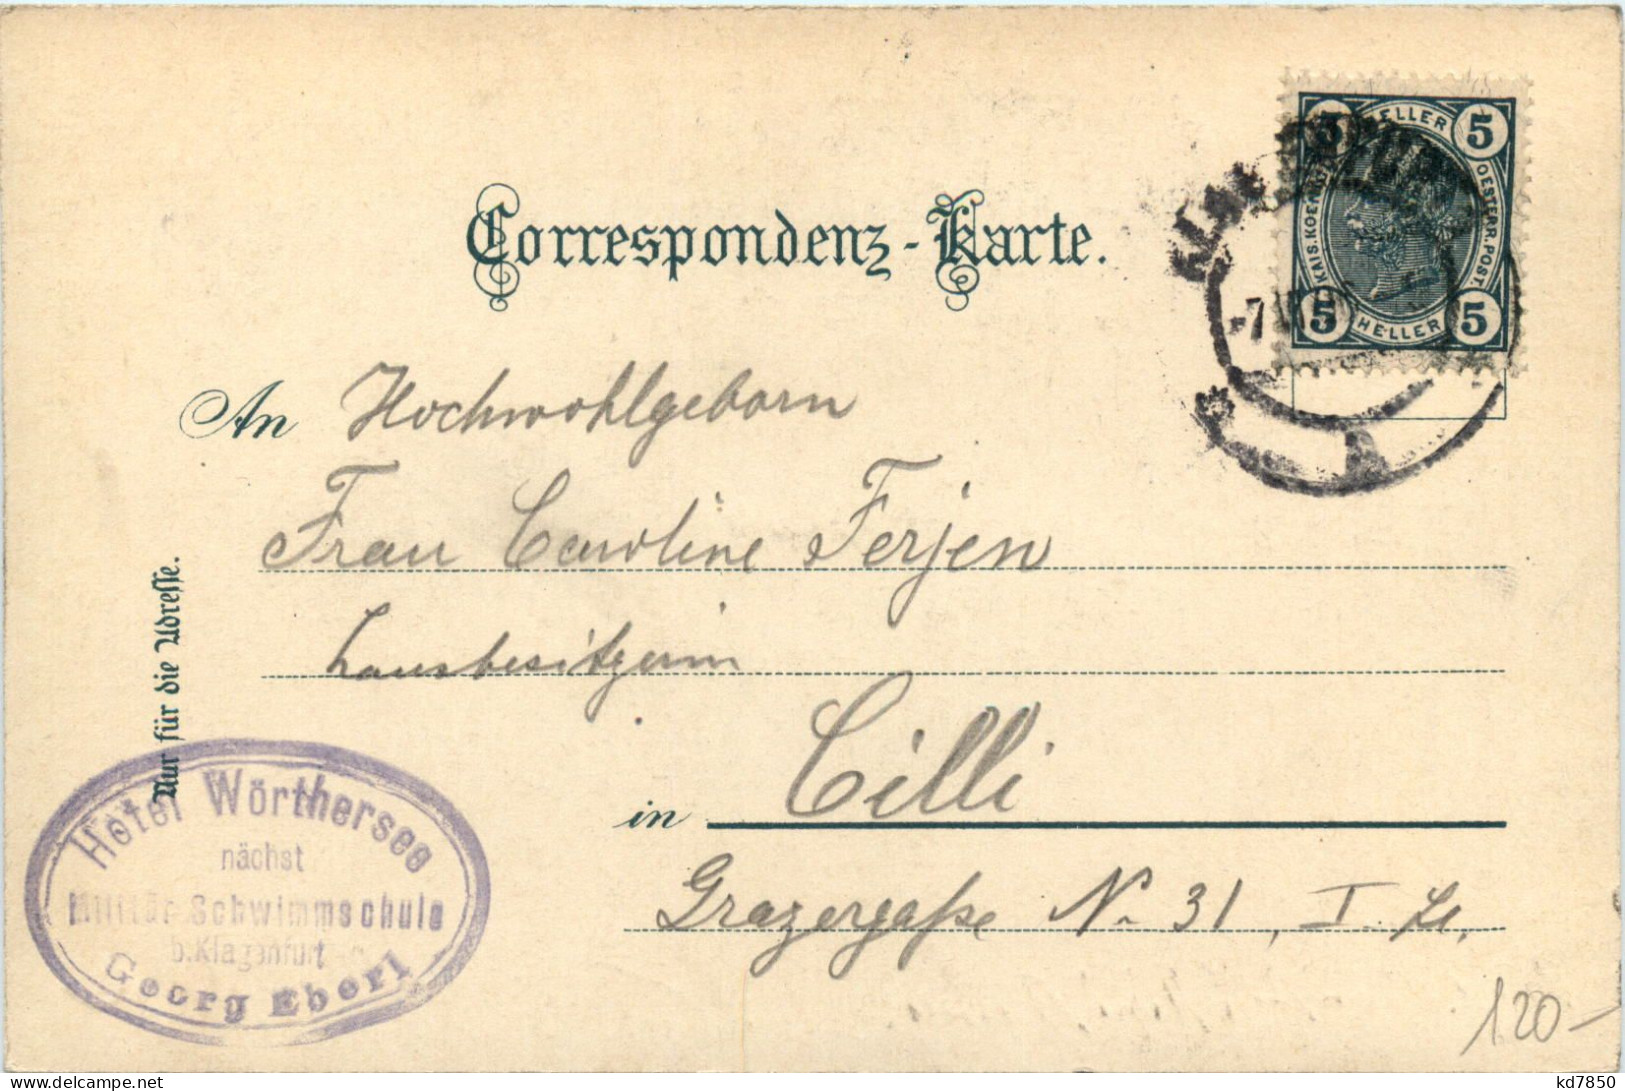 Correspondenz-Karte.
5 HELLER 5
KAIS. KOENIGL. OESTERR. POST.
5 HELLER 5
KLAGENFURT
-7
An Hochwohlgeborn
Frau Caroline Ferjen
Hausbesitzerin
in Cilli
Grazergaße No 31, I. St.
Nur für die Adresse.
Hôtel Wörthersee
nächst
Militär-Schwimmschule
b. Klagenfurt
Georg Eberl
120-
kd7850